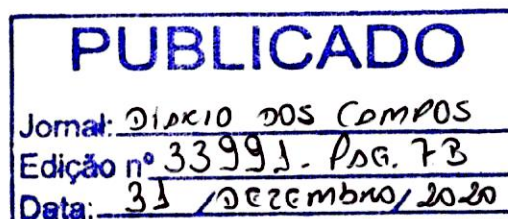 PUBLICADO
Jornal: DIÁRIO DOS CAMPOS
Edição nº 33991. PÁG. 7B
Data: 31 / DEZEMBRO / 2020